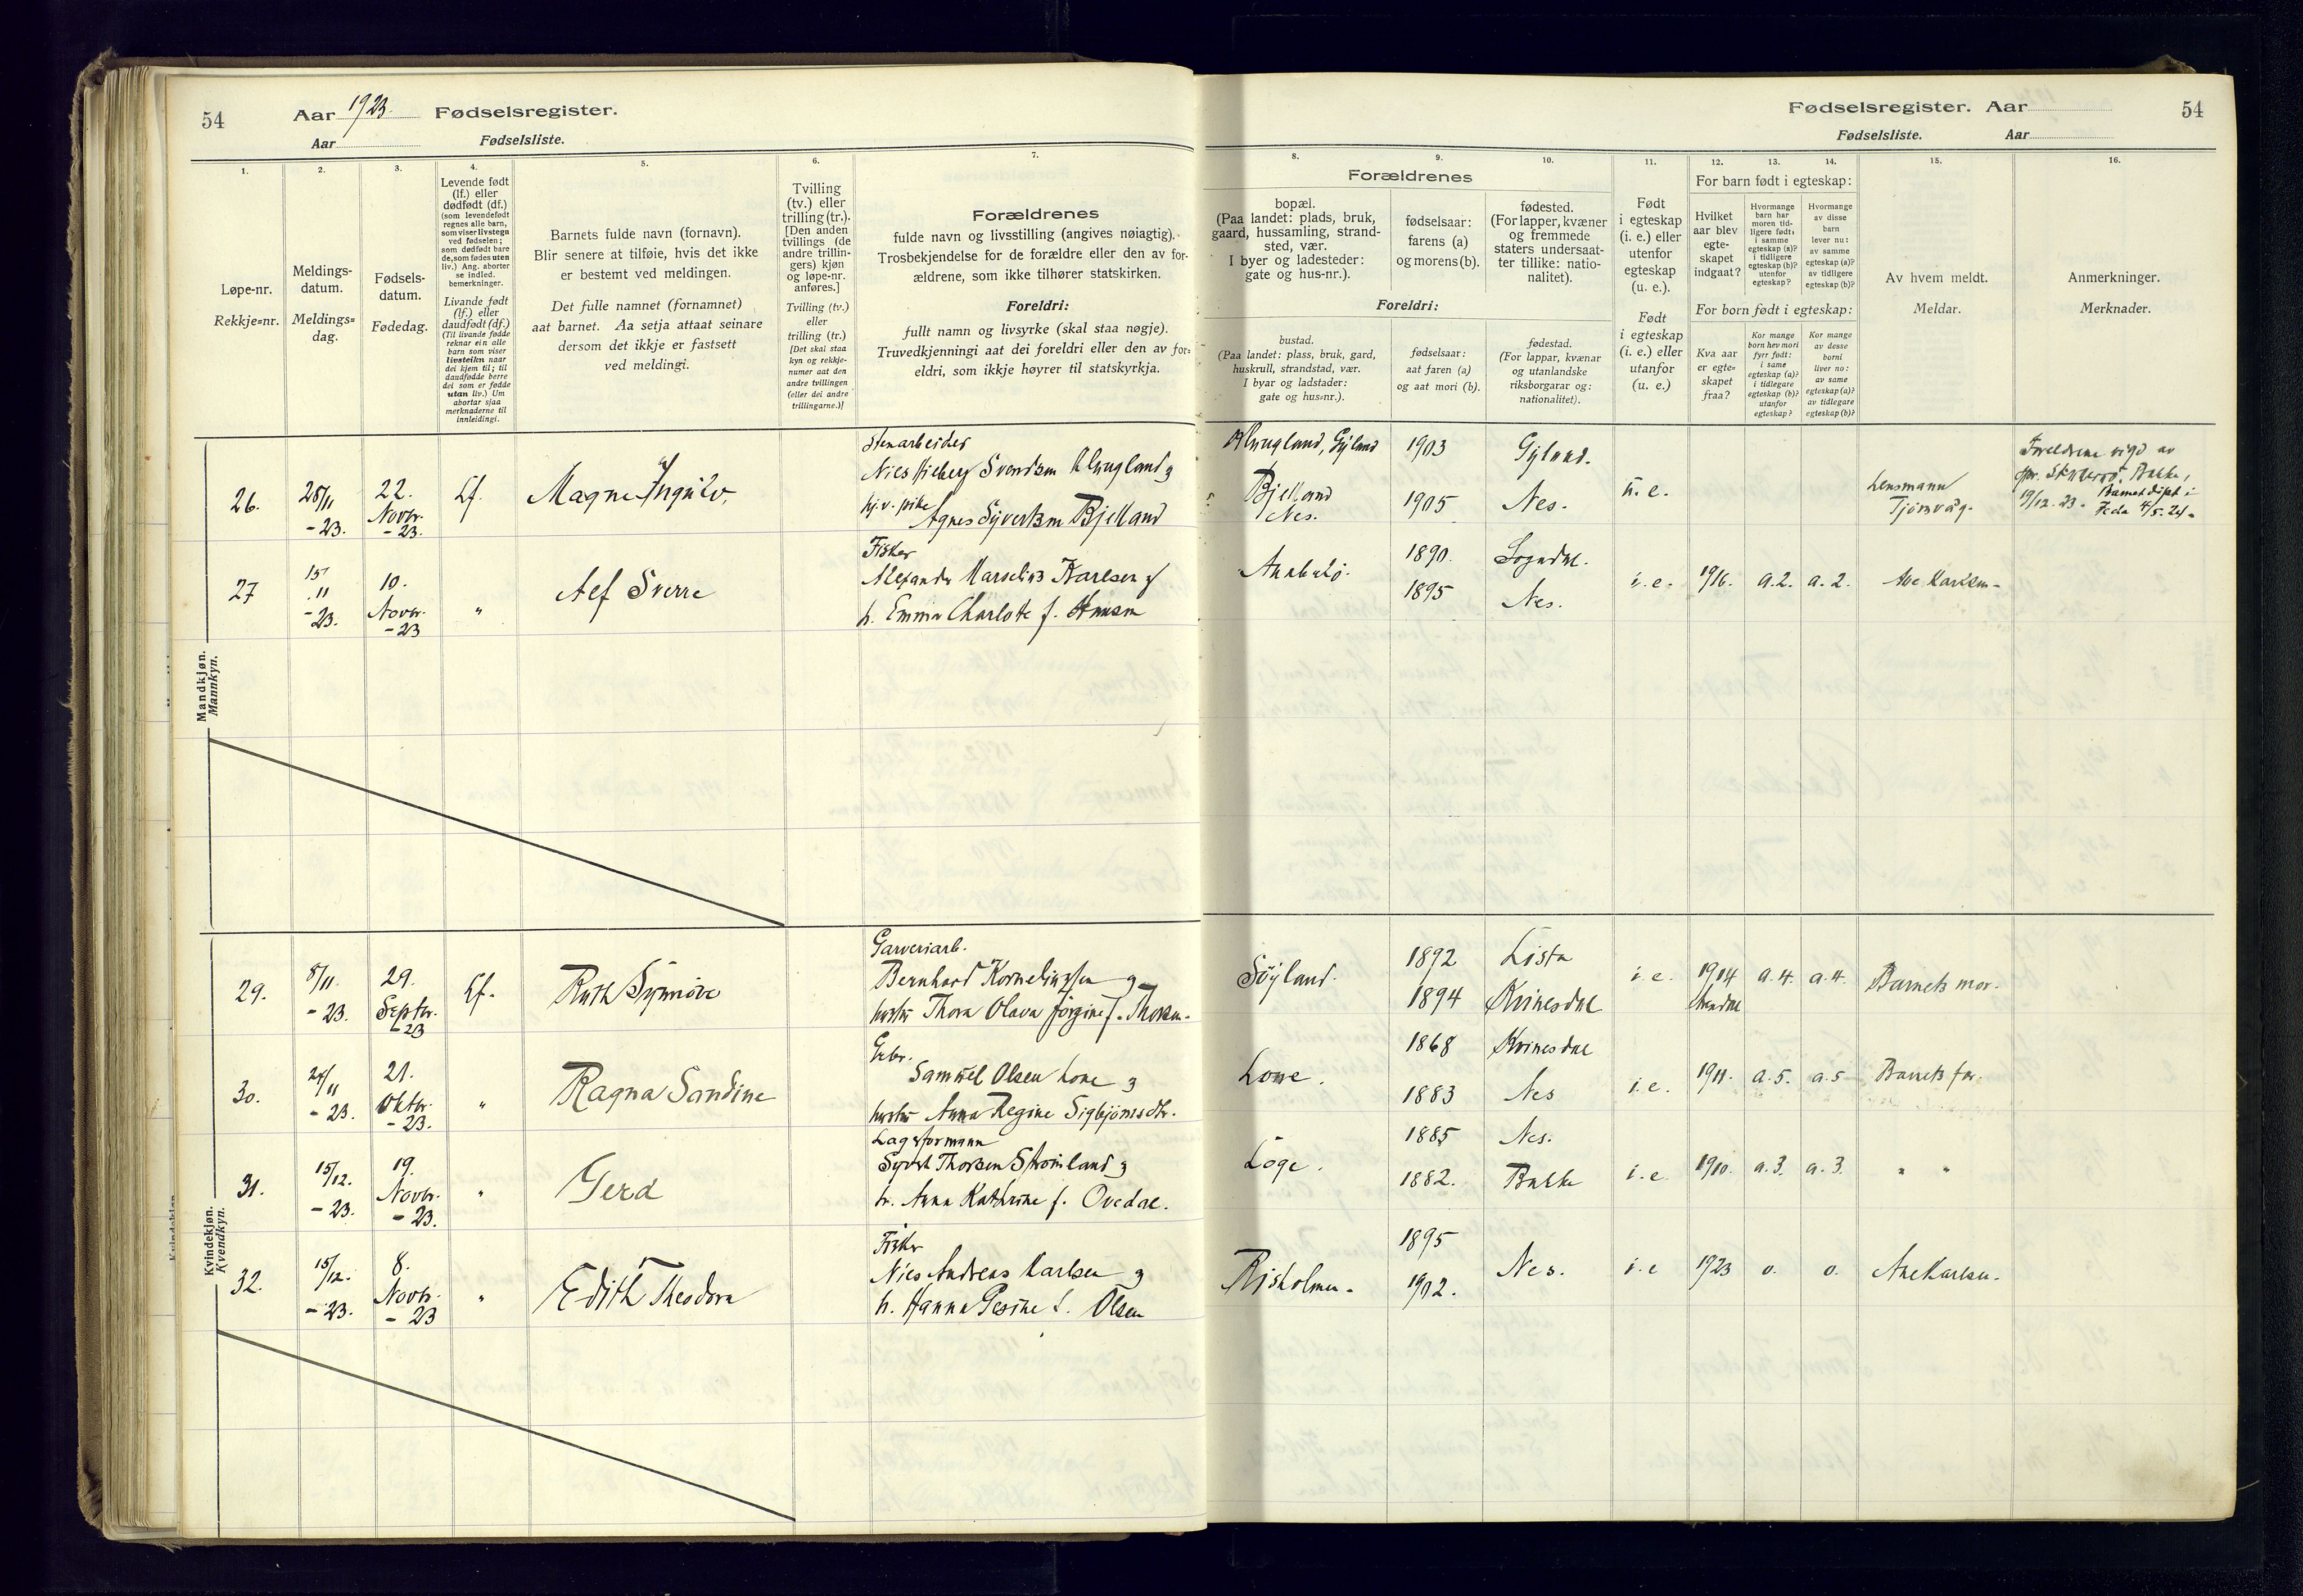 54
Aar 1923. Fødselsregister.
Aar Fødselsliste.
1.
Løpe-nr.
Rekkje=nr.
2.
Meldings-
datum.
Meldings=
dag.
3.
Fødsels-
datum.
Fødedag.
4.
Levende født
(lf.) eller
dødfødt (df.)
(som levendefødt
regnes alle barn,
som viser livstegn
ved fødselen;
som dødfødt bare
de, som fødes uten
liv.) Ang. aborter
se indled.
bemerkninger.
Livande født
(lf.) eller
daudfødt (df.)
(Til livande fødde
reknar ein alle
barn som viser
livsteikn naar
dei kjem til; til
daudfødde berre
dei som er fødde
utan liv.) Um
abortar sjaa
merknaderne til
innleidingi.
5.
Barnets fulde navn (fornavn).
Blir senere at tilføie, hvis det ikke
er bestemt ved meldingen.
Det fulle namnet (fornamnet)
aat barnet. Aa setja attaat seinare
dersom det ikkje er fastsett
ved meldingi.
6.
Tvilling
(tv.) eller
trilling (tr.).
[Den anden
tvillings (de
andre trillin-
gers) kjøn
og løpe-nr.
anføres.]
Tvilling (tv.)
eller
trilling (tr.)
[Det skal staa
kyn og rekkje-
numer aat den
andre tvillingen
(eller dei andre
trillingarne.)]
7.
Forældrenes
fulde navn og livsstilling (angives nøiagtig).
Trosbekjendelse for de forældre eller den av for-
ældrene, som ikke tilhører statskirken.
Foreldri:
fullt namn og livsyrke (skal staa nøgje).
Truvedkjenningi aat dei foreldri eller den av for=
eldri, som ikkje høyrer til statskyrkja.
26.
28/11
-23.
22.
Novbr.
-23.
Lf.
Magne Ingulv.
Stenarbeider
Svendsen
Agnes Syvertsen Bjelland
27
15
11
-23.
10.
Novbr.
-23
"
Alf Sverre
Fisker
Alexander Marselius Karlsen
h. Emma Charlotte f. Hansen
Mandkjøn.
Mannkyn.
29.
8/11.
-23.
29.
Septbr.
-23
Lf.
Ruth Synnøve
Garveriarb.
Bernhard Korneliussen
hustru Thora Olava Jørgine f. Thorsen.
30.
11
-23.
21.
Oktbr.
-23.
"
Ragna Sandine
Gbr.
Samuel Olsen Lone
hustru Anna Regine Sigbjørnsdtr.
31.
15/12.
-23.
19.
Novbr.
-23.
"
Gerd
Lagerformann
Syvert Thorsen Strømland
h. Anna Kathrine f. Ovedal.
Kvindekjøn.
Kvendkyn.
32.
15/12.
-23.
8.
Novbr.
-23
"
Edith Theodora
Fisker
Nils Andreas Karlsen
h. Hanna Gesine f. Olsen
Fødselsregister. Aar
54
Fødselsliste. Aar
8.
9.
10.
Forældrenes
bopæl.
(Paa landet: plads, bruk,
gaard, hussamling, strand-
sted, vær.
I byer og ladesteder:
gate og hus-nr.).
fødselsaar:
farens (a)
og morens (b).
fødested.
(For lapper, kvæner
og fremmede
staters undersaat-
ter tillike: natio-
nalitet).
Foreldri:
bustad.
(Paa landet: plass, bruk, gard,
huskrull, strandstad, vær.
I byar og ladstader:
gate og hus=nr.).
fødselsaar:
aat faren (a)
og aat mori (b).
fødestad.
(For lappar, kvænar
og utanlandske
riksborgarar og:
nationalitet).
11.
Født
i egteskap
(i. e.) eller
utenfor
egteskap
(u. e.).
Født
i egteskap
(i. e.) eller
utanfor
(u. e.)
12.
13.
14.
For barn født i egteskap:
Hvilket
aar blev
egte-
skapet
indgaat?
Hvormange
barn har
moren tid-
ligere født:
i samme
egteskap (a)?
i tidligere
egteskap (b)?
utenfor
egteskap?
Hvormange
av disse
barn
lever nu:
av samme
egteskap (a)?
av tidligere
egteskap (b)?
For born født i egteskap:
Kva aar
er egte=
skapet
fraa?
Kor mange
born hev mori
fyrr født:
i same
egteskap (a)?
i tidlegare
egteskap (b)?
utanfor
egteskap?
Kor mange
av desse
borni
liver no:
av same
egteskap (a)?
av tidlegare
egteskap (b)?
15.
Av hvem meldt.
Meldar.
16.
Anmerkninger.
Merknader.
Gyland
Bjelland
Nes.
1903
1905
Gyland.
Nes.
u. e.
Lensmann
Tjørsvåg.
Foreldrene vigd av
Bakke,
19/12. 23. Barnet døpt i
Feda 4/5. 24.
Anabelø.
1890.
1895
Sogndal.
Nes.
i. e.
1916.
a. 2.
a. 2.
Søyland.
1892
1894
Lista
Kvinesdal
i. e.
1914
a. 4.
a. 4.
Barnets mor.
Lone.
1868
1883
Kvinesdal
Nes
i. e.
1911.
a. 5.
a. 5
Barnets far.
Løge.
1885
1882.
Nes.
Bakke
i. e.
1910.
a. 3.
a. 3.
" "
Risholmen.
1895
1902.
Nes.
i. e
1923
o.
o.
Ane Karlsen.